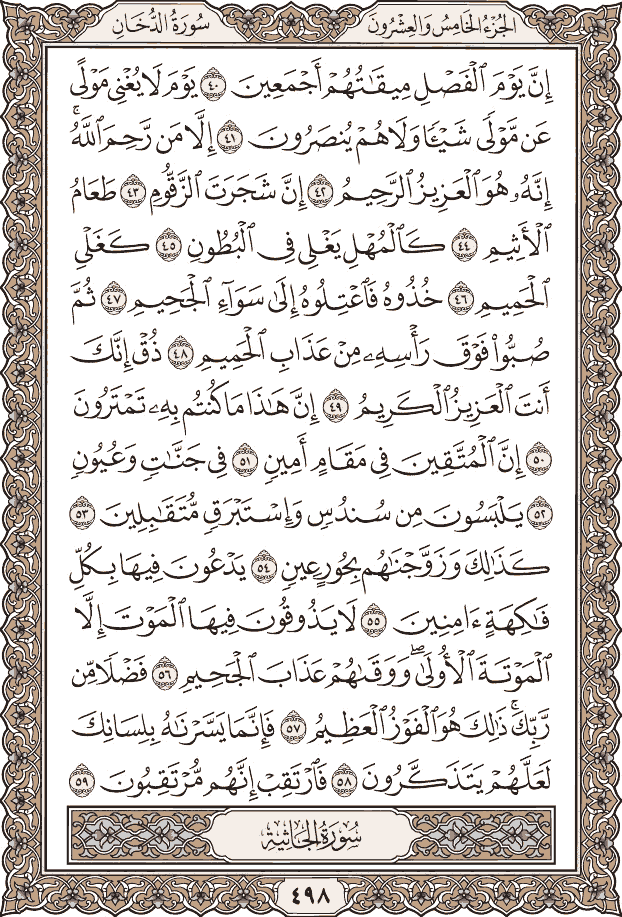 الجزء الخامس والعشرون
سورة الدخان
إِنَّ يَوْمَ ٱلْفَصْلِ مِيقَٰتُهُمْ أَجْمَعِينَ ٤٠ يَوْمَ لَا يُغْنِى مَوْلًى
عَن مَّوْلًى شَيْـًٔا وَلَا هُمْ يُنصَرُونَ ٤١ إِلَّا مَن رَّحِمَ ٱللَّهُۚ
إِنَّهُۥ هُوَ ٱلْعَزِيزُ ٱلرَّحِيمُ ٤٢ إِنَّ شَجَرَتَ ٱلزَّقُّومِ ٤٣ طَعَامُ
ٱلْأَثِيمِ ٤٤ كَٱلْمُهْلِ يَغْلِى فِى ٱلْبُطُونِ ٤٥ كَغَلْىِ
ٱلْحَمِيمِ ٤٦ خُذُوهُ فَٱعْتِلُوهُ إِلَىٰ سَوَآءِ ٱلْجَحِيمِ ٤٧ ثُمَّ
صُبُّوا۟ فَوْقَ رَأْسِهِۦ مِنْ عَذَابِ ٱلْحَمِيمِ ٤٨ ذُقْ إِنَّكَ
أَنتَ ٱلْعَزِيزُ ٱلْكَرِيمُ ٤٩ إِنَّ هَٰذَا مَا كُنتُم بِهِۦ تَمْتَرُونَ
٥٠ إِنَّ ٱلْمُتَّقِينَ فِى مَقَامٍ أَمِينٍ ٥١ فِى جَنَّٰتٍ وَعُيُونٍ
٥٢ يَلْبَسُونَ مِن سُندُسٍ وَإِسْتَبْرَقٍ مُّتَقَٰبِلِينَ ٥٣
كَذَٰلِكَ وَزَوَّجْنَٰهُم بِحُورٍ عِينٍ ٥٤ يَدْعُونَ فِيهَا بِكُلِّ
فَٰكِهَةٍ ءَامِنِينَ ٥٥ لَا يَذُوقُونَ فِيهَا ٱلْمَوْتَ إِلَّا
ٱلْمَوْتَةَ ٱلْأُولَىٰۖ وَوَقَىٰهُمْ عَذَابَ ٱلْجَحِيمِ ٥٦ فَضْلًا مِّن
رَّبِّكَۚ ذَٰلِكَ هُوَ ٱلْفَوْزُ ٱلْعَظِيمُ ٥٧ فَإِنَّمَا يَسَّرْنَٰهُ بِلِسَانِكَ
لَعَلَّهُمْ يَتَذَكَّرُونَ ٥٨ فَٱرْتَقِبْ إِنَّهُم مُّرْتَقِبُونَ ٥٩
سُورَةُ الجَاثِيَةِ
٤٩٨